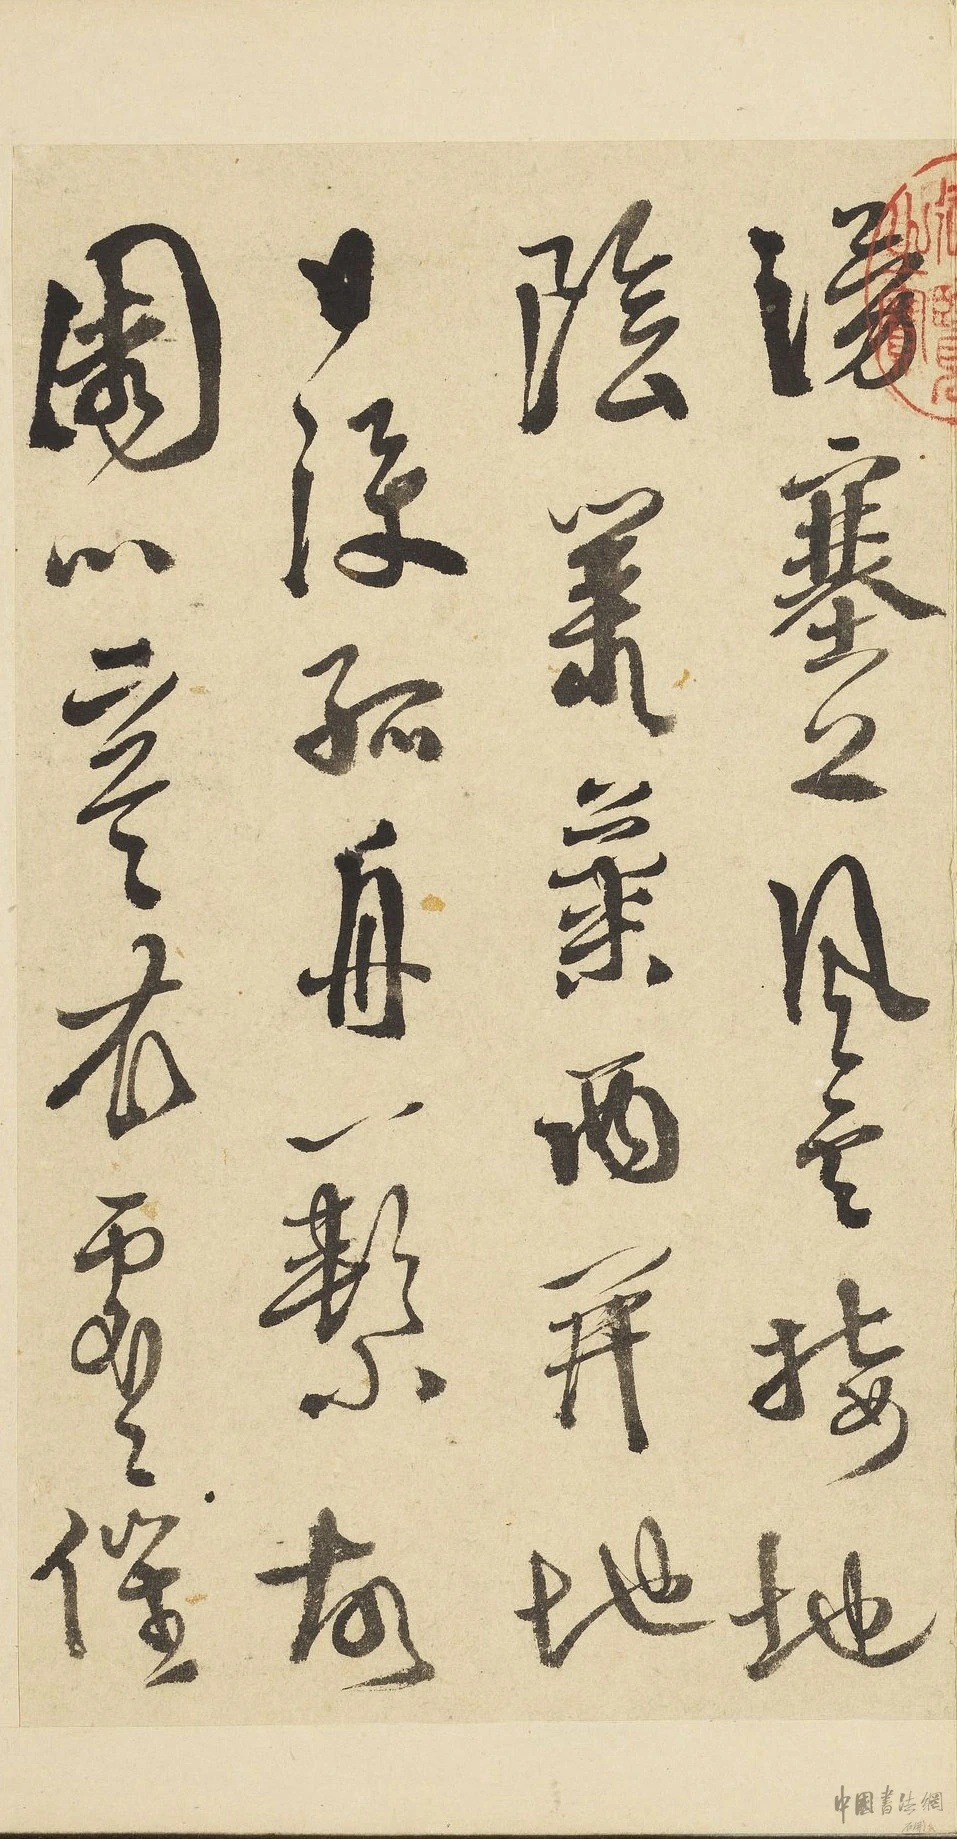 湧塞上風雲接地
陰叢菊兩開地
日淚孤舟一繫故
園心寒衣處々催
中國書法網